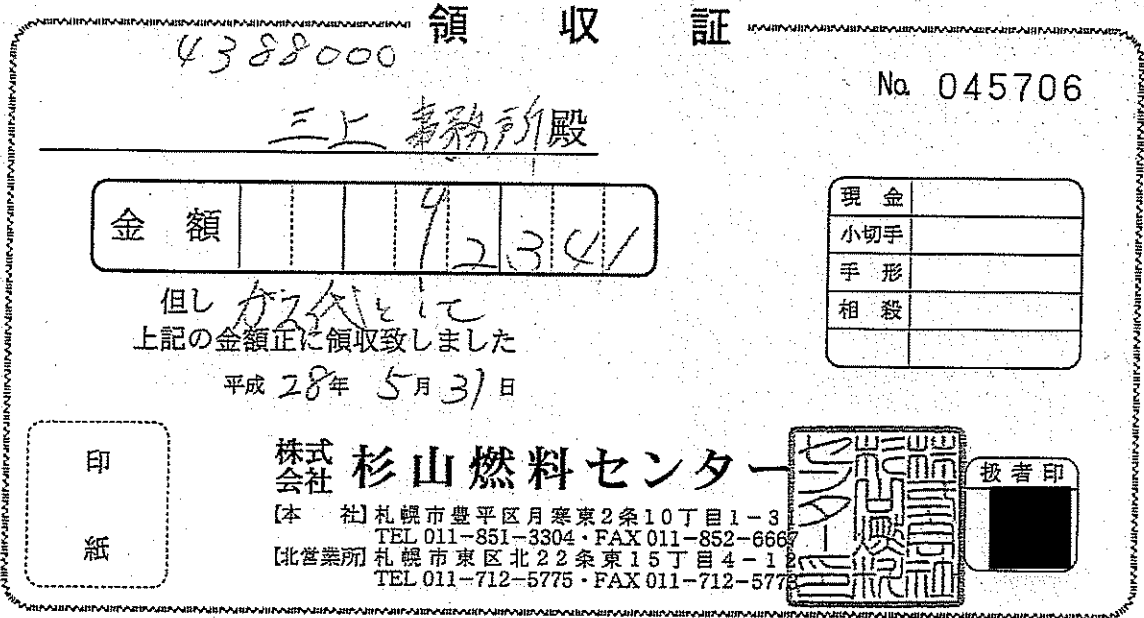 領収証
4388000
No. 045706
三上事務所殿
金額 92341
現金
小切手
手形
相殺
但し ガス代として
上記の金額正に領収致しました
平成 28年 5月 31日
印紙
株式会社 杉山燃料センター
扱者印
【本　社】札幌市豊平区月寒東2条10丁目1-3
TEL 011-851-3304・FAX 011-852-6667
【北営業所】札幌市東区北22条東15丁目4-12
TEL 011-712-5775・FAX 011-712-577